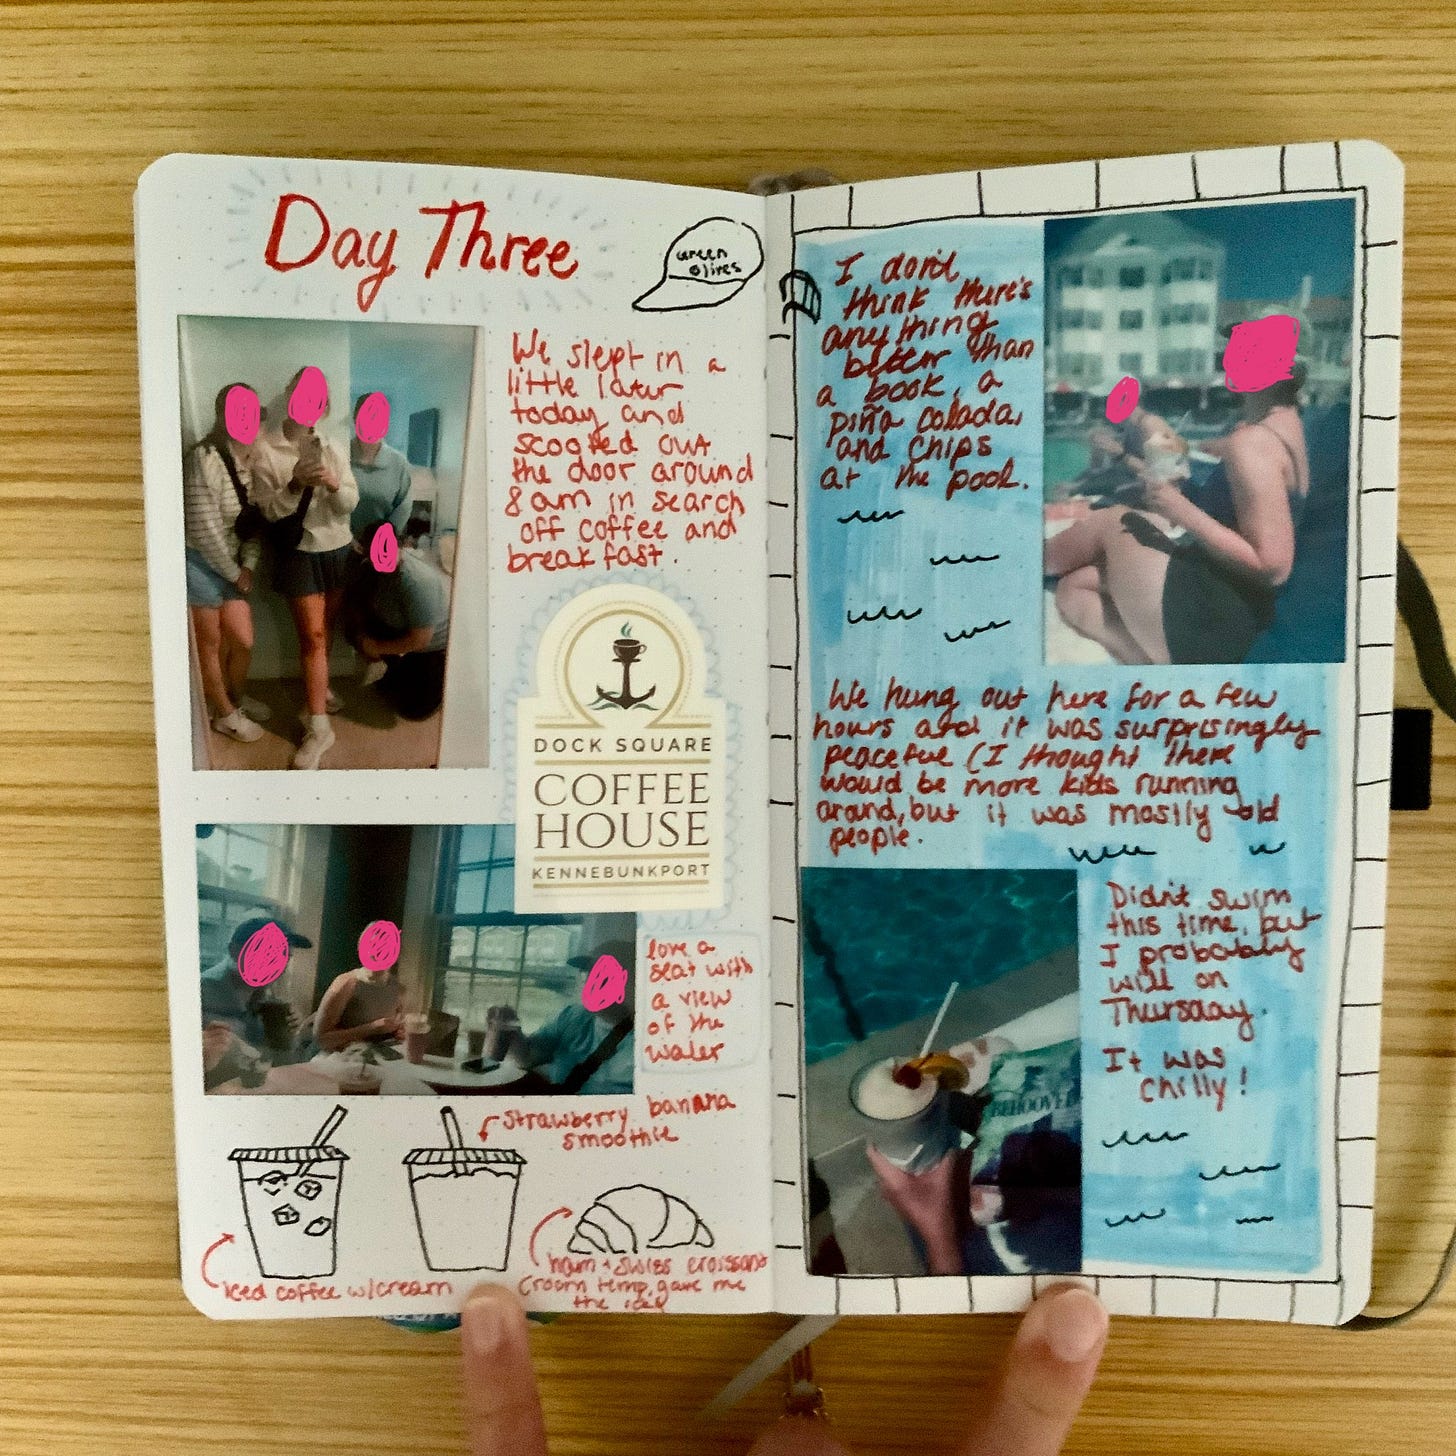 Day Three
Green
olives
We slept in a
little later
today and
scooted out
the door around
8am in search
off coffee and
breakfast.
DOCK SQUARE
COFFEE
HOUSE
KENNEBUNKPORT
love a
seat with
a view
of the
water
strawberry banana
smoothie
iced coffee w/cream
ham + swiss croissant
(room temp, gave me
the
I don't
think there's
anything
better than
a book, a
piña colada,
and chips
at the pool.
We hung out here for a few
hours and it was surprisingly
peaceful (I thought there
would be more kids running
around, but it was mostly old
people.
Didn't swim
this time, but
I probably
will on
Thursday.
It was
chilly!
BEHOOVED